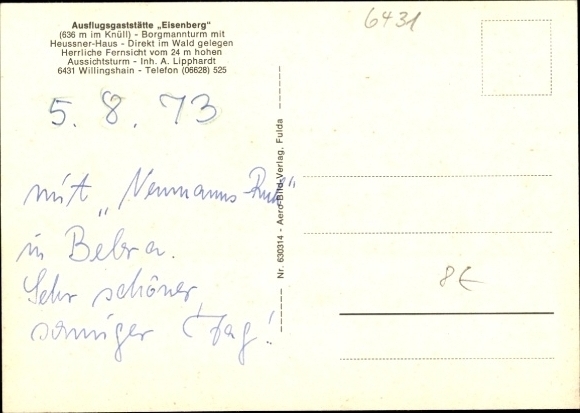 Ausflugsgaststätte „Eisenberg"
(636 m im Knüll) - Borgmannturm mit
Heussner-Haus - Direkt im Wald gelegen
Herrliche Fernsicht vom 24 m hohen
Aussichtsturm - Inh. A. Lipphardt
6431 Willingshain - Telefon (06628) 525
6431
5. 8. 73
mit „Neumanns
in Bebra.
Sehr schöner,
sonniger Tag!
Nr. 630314 - Aero-Bild-Verlag, Fulda
8€